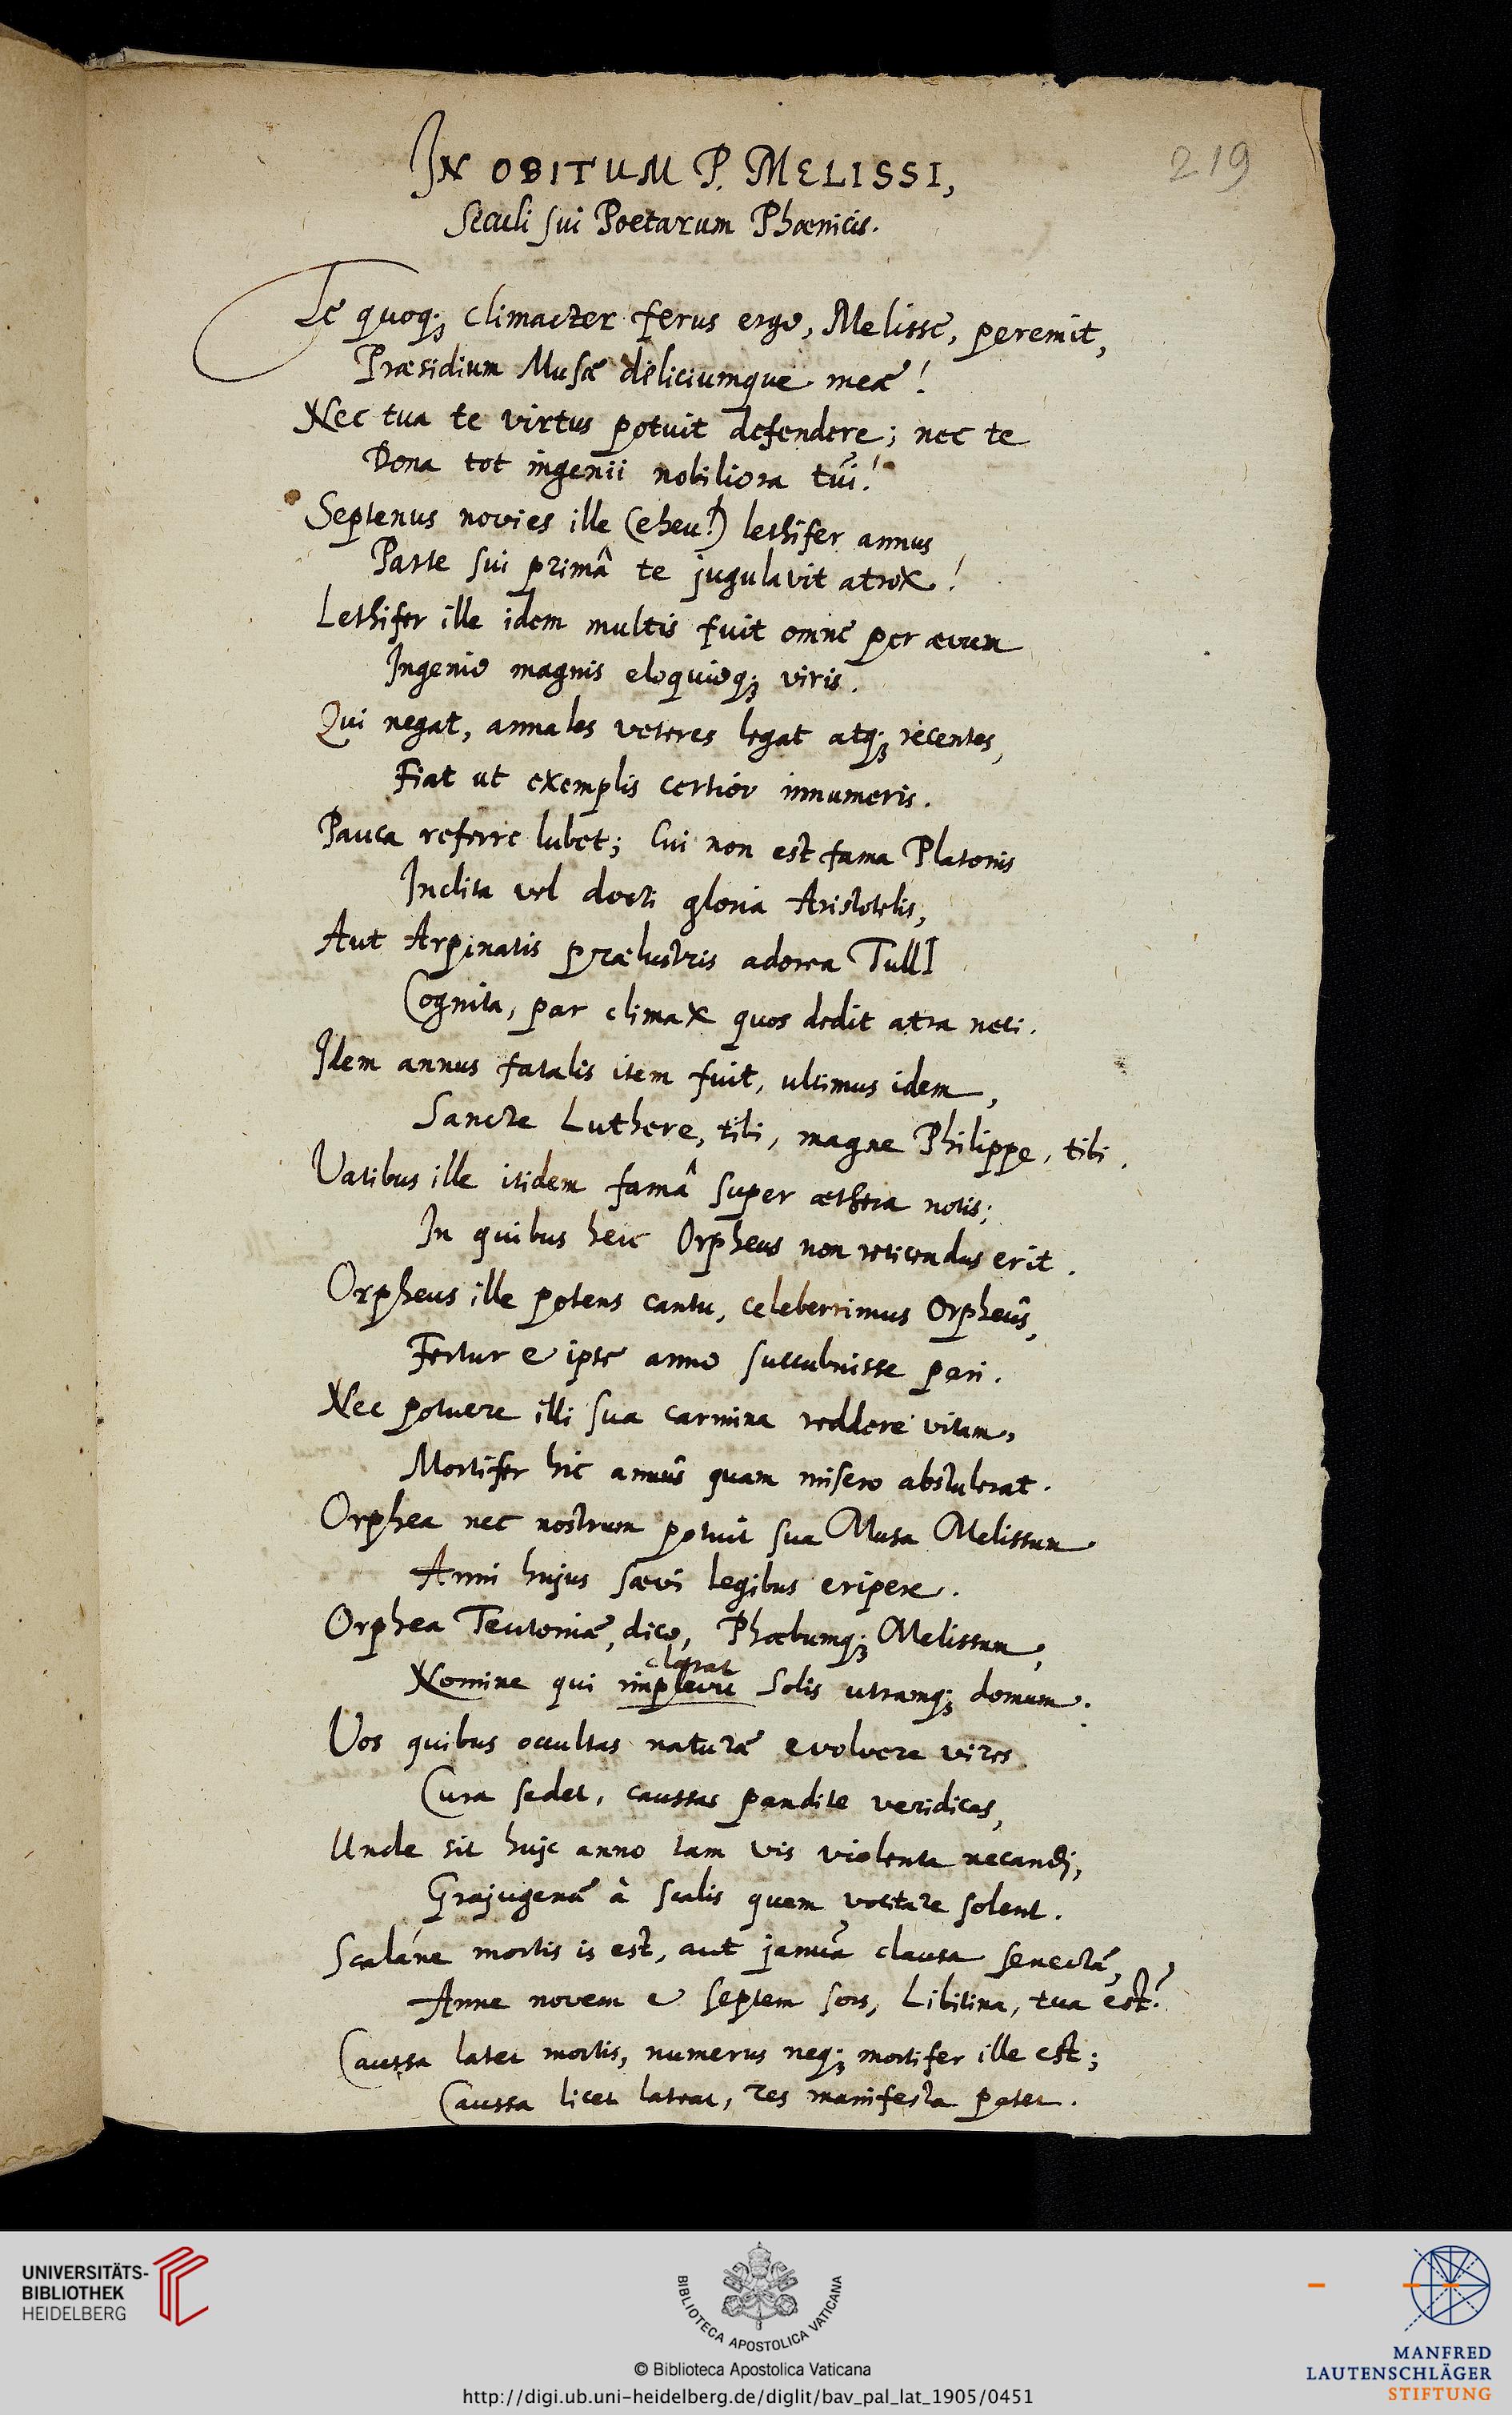 219
IN OBITUM P. MELISSI,
Seculi sui Poetarum Phœnicis.
Te quoq; climacter ferus ergo, Melisse, peremit,
Præsidium Musæ deliciumque meæ!
Nec tua te virtus potuit defendere; nec te
Dona tot ingenii nobiliora tui!
Septenus novies ille (eheu!) lethifer annus
Parte sui primâ te jugulavit atrox!
Lethifer ille idem multis fuit omne per ævum
Ingenio magnis eloquioq; viris.
Qui negat, annales veteres legat atq; recentes,
Fiat ut exemplis certior innumeris.
Pauca referre lubet; Cui non est fama Platonis
Inclita vel docti gloria Aristotelis,
Aut Arpinatis prælustris adorea TullI
Cognita, par climax quos dedit atra neci.
Idem annus fatalis item fuit, ultimus idem,
Sancte Luthere, tibi, magne Philippe, tibi.
Vatibus ille itidem famâ super æthera notis;
In quibus heic Orpheus non reticendus erit.
Orpheus ille potens cantu, celeberrimus Orpheus,
Fertur & ipse anno succubuisse pari.
Nec potuere illi sua carmina reddere vitam,
Mortifer hic annus quam misero abstulerat.
Orphea nec nostrum potuit sua Musa Melissum
Anni hujus sævi legibus eripere.
Orphea Teutoniæ, dico, Phœbumq; Melissum,
clarat
Nomine qui implevit Solis utramq; domum.
Vos quibus occultas naturæ evolvere vires
Cura sedet, caussas pandite veridicas,
Unde sit hujc anno tam vis violenta necandj,
Grajugenæ à scalis quem vocitare solent.
Scaláne mortis is est, aut janua clausa senectæ,
Anne novem & septem sors, Libitina, tua est?
Caussa latet mortis, numerus neq; mortifer ille est;
Caussa licet lateat, res manifesta patet.
UNIVERSITÄTS-
BIBLIOTHEK
HEIDELBERG
BIBLIOTECA APOSTOLICA VATICANA
© Biblioteca Apostolica Vaticana
http://digi.ub.uni-heidelberg.de/diglit/bav_pal_lat_1905/0451
MANFRED
LAUTENSCHLÄGER
STIFTUNG